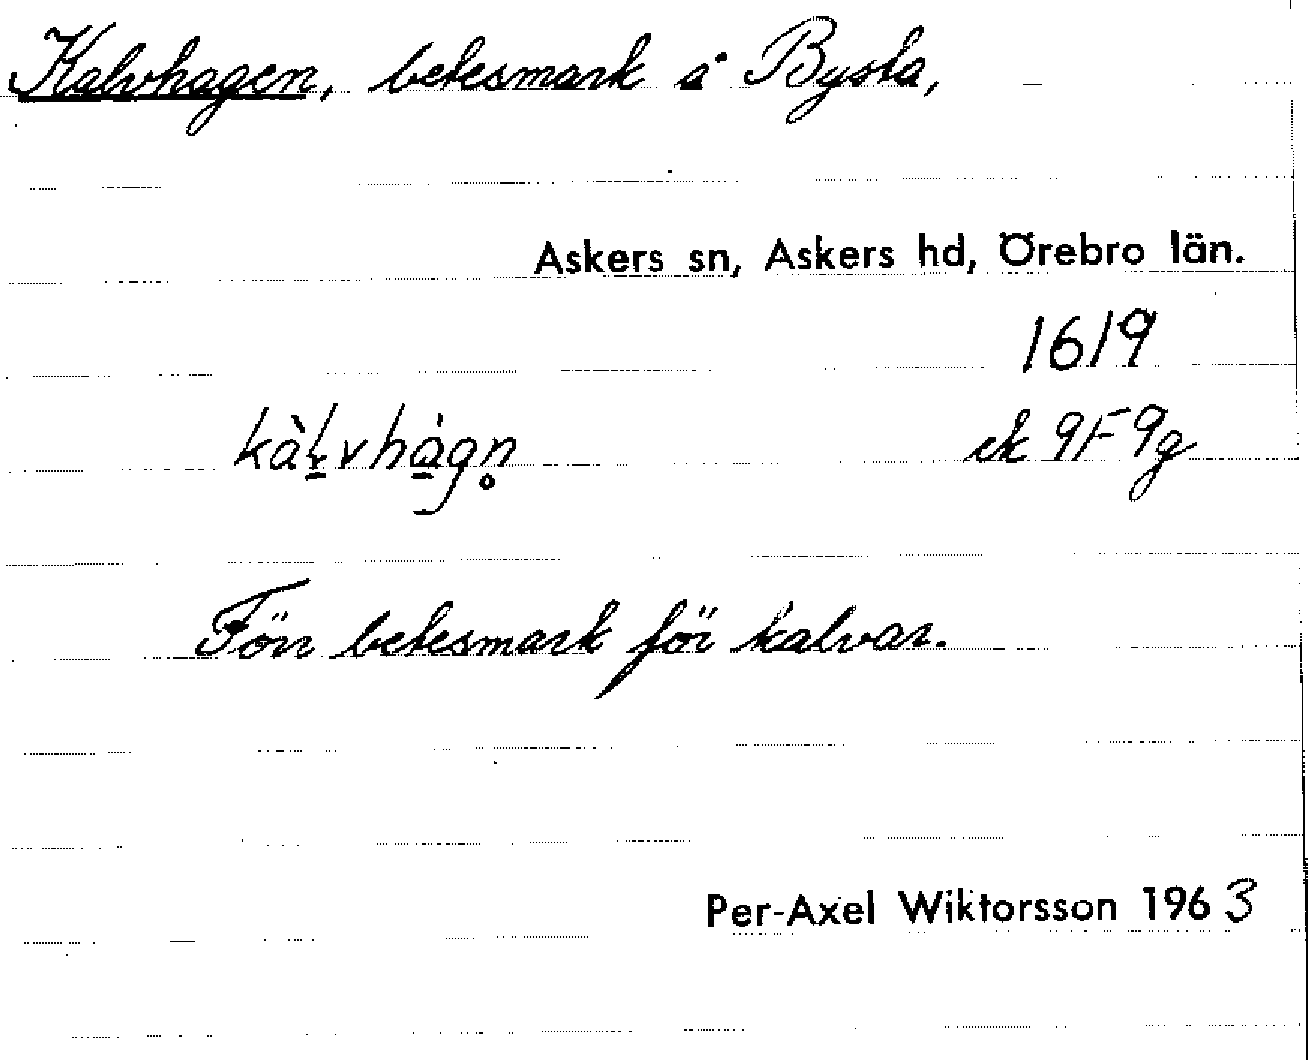 Kalvhagen, betesmark å Bysta,
Askers sn, Askers hd, Örebro län.
1619
kàḻvhа̀gn̥ ek 9F9g
Förr betesmark för kalvar.
Per-Axel Wiktorsson 1963